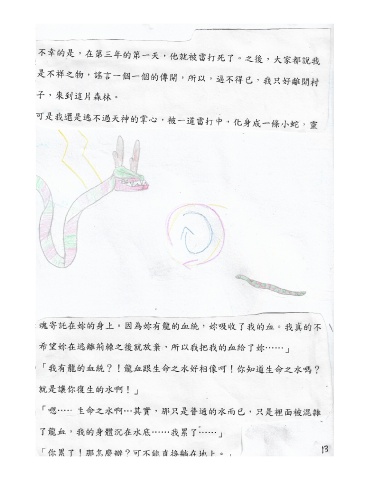 不幸的是，在第三年的第一天，他就被雷打死了。之後，大家都說我
是不祥之物，謠言一個一個的傳開，所以，逼不得已，我只好離開村
子，來到這片森林。
可是我還是逃不過天神的掌心，被一道雷打中，化身成一條小蛇。靈
魂寄託在妳的身上，因為妳有龍的血統，妳吸收了我的血。我真的不
希望妳在逃離荊棘之後就放棄，所以我把我的血給了妳……」
「我有龍的血統？！龍血跟生命之水好相像呵！你知道生命之水嗎？
就是讓你復生的水啊！」
「嗯……生命之水啊…其實，那只是普通的水而已，只是裡面被混雜
了龍血，我的身體沉在水底……我累了……」
「你累了！那怎麼辦？可不能直接躺在地上。」
13